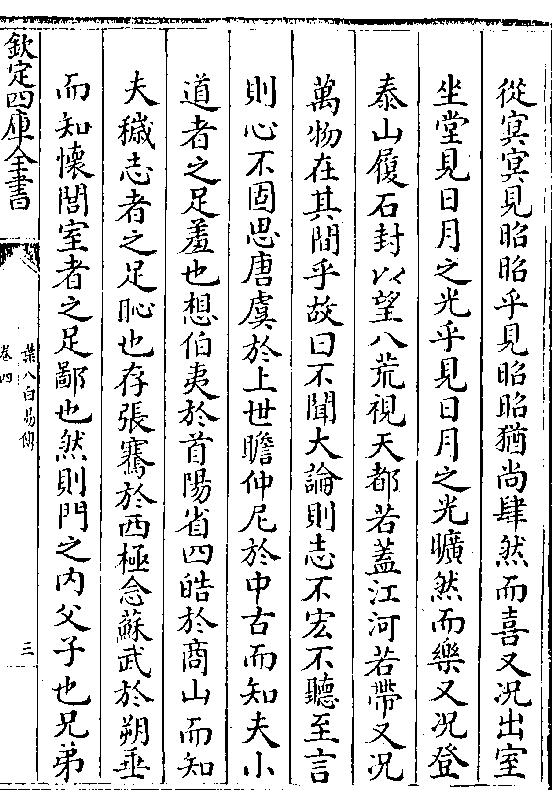 從㝠㝠見昭昭乎見昭昭猶尚肆然而喜又况出室
坐堂見日月之光乎見日月之光曠然而樂又况登
泰山履石封以望八荒視天都若蓋江河若帶又况
萬物在其間乎故曰不聞大論則志不宏不聽至言
則心不固思唐虞於上世瞻仲尼於中古而知夫小
道者之足羞也想伯夷於首陽省四皓於商山而知
夫穢志者之足恥也存張騫於西極念蘇武於朔垂
而知懷閭室者之足鄙也然則門之内父子也兄弟
欽定四庫全書
葉八白易傳
卷四
三